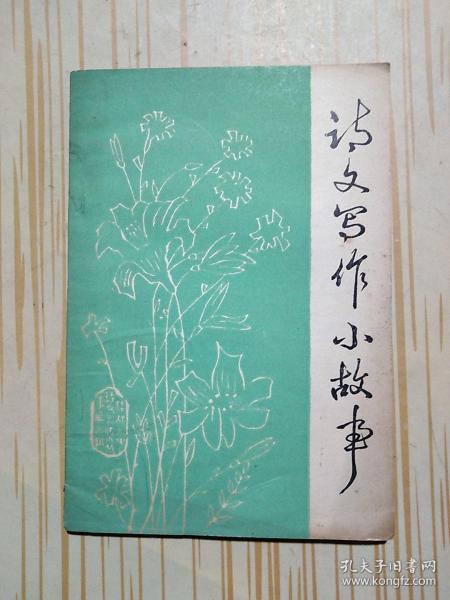 诗文写作小故事
孔夫子旧书网
www.kongfz.com